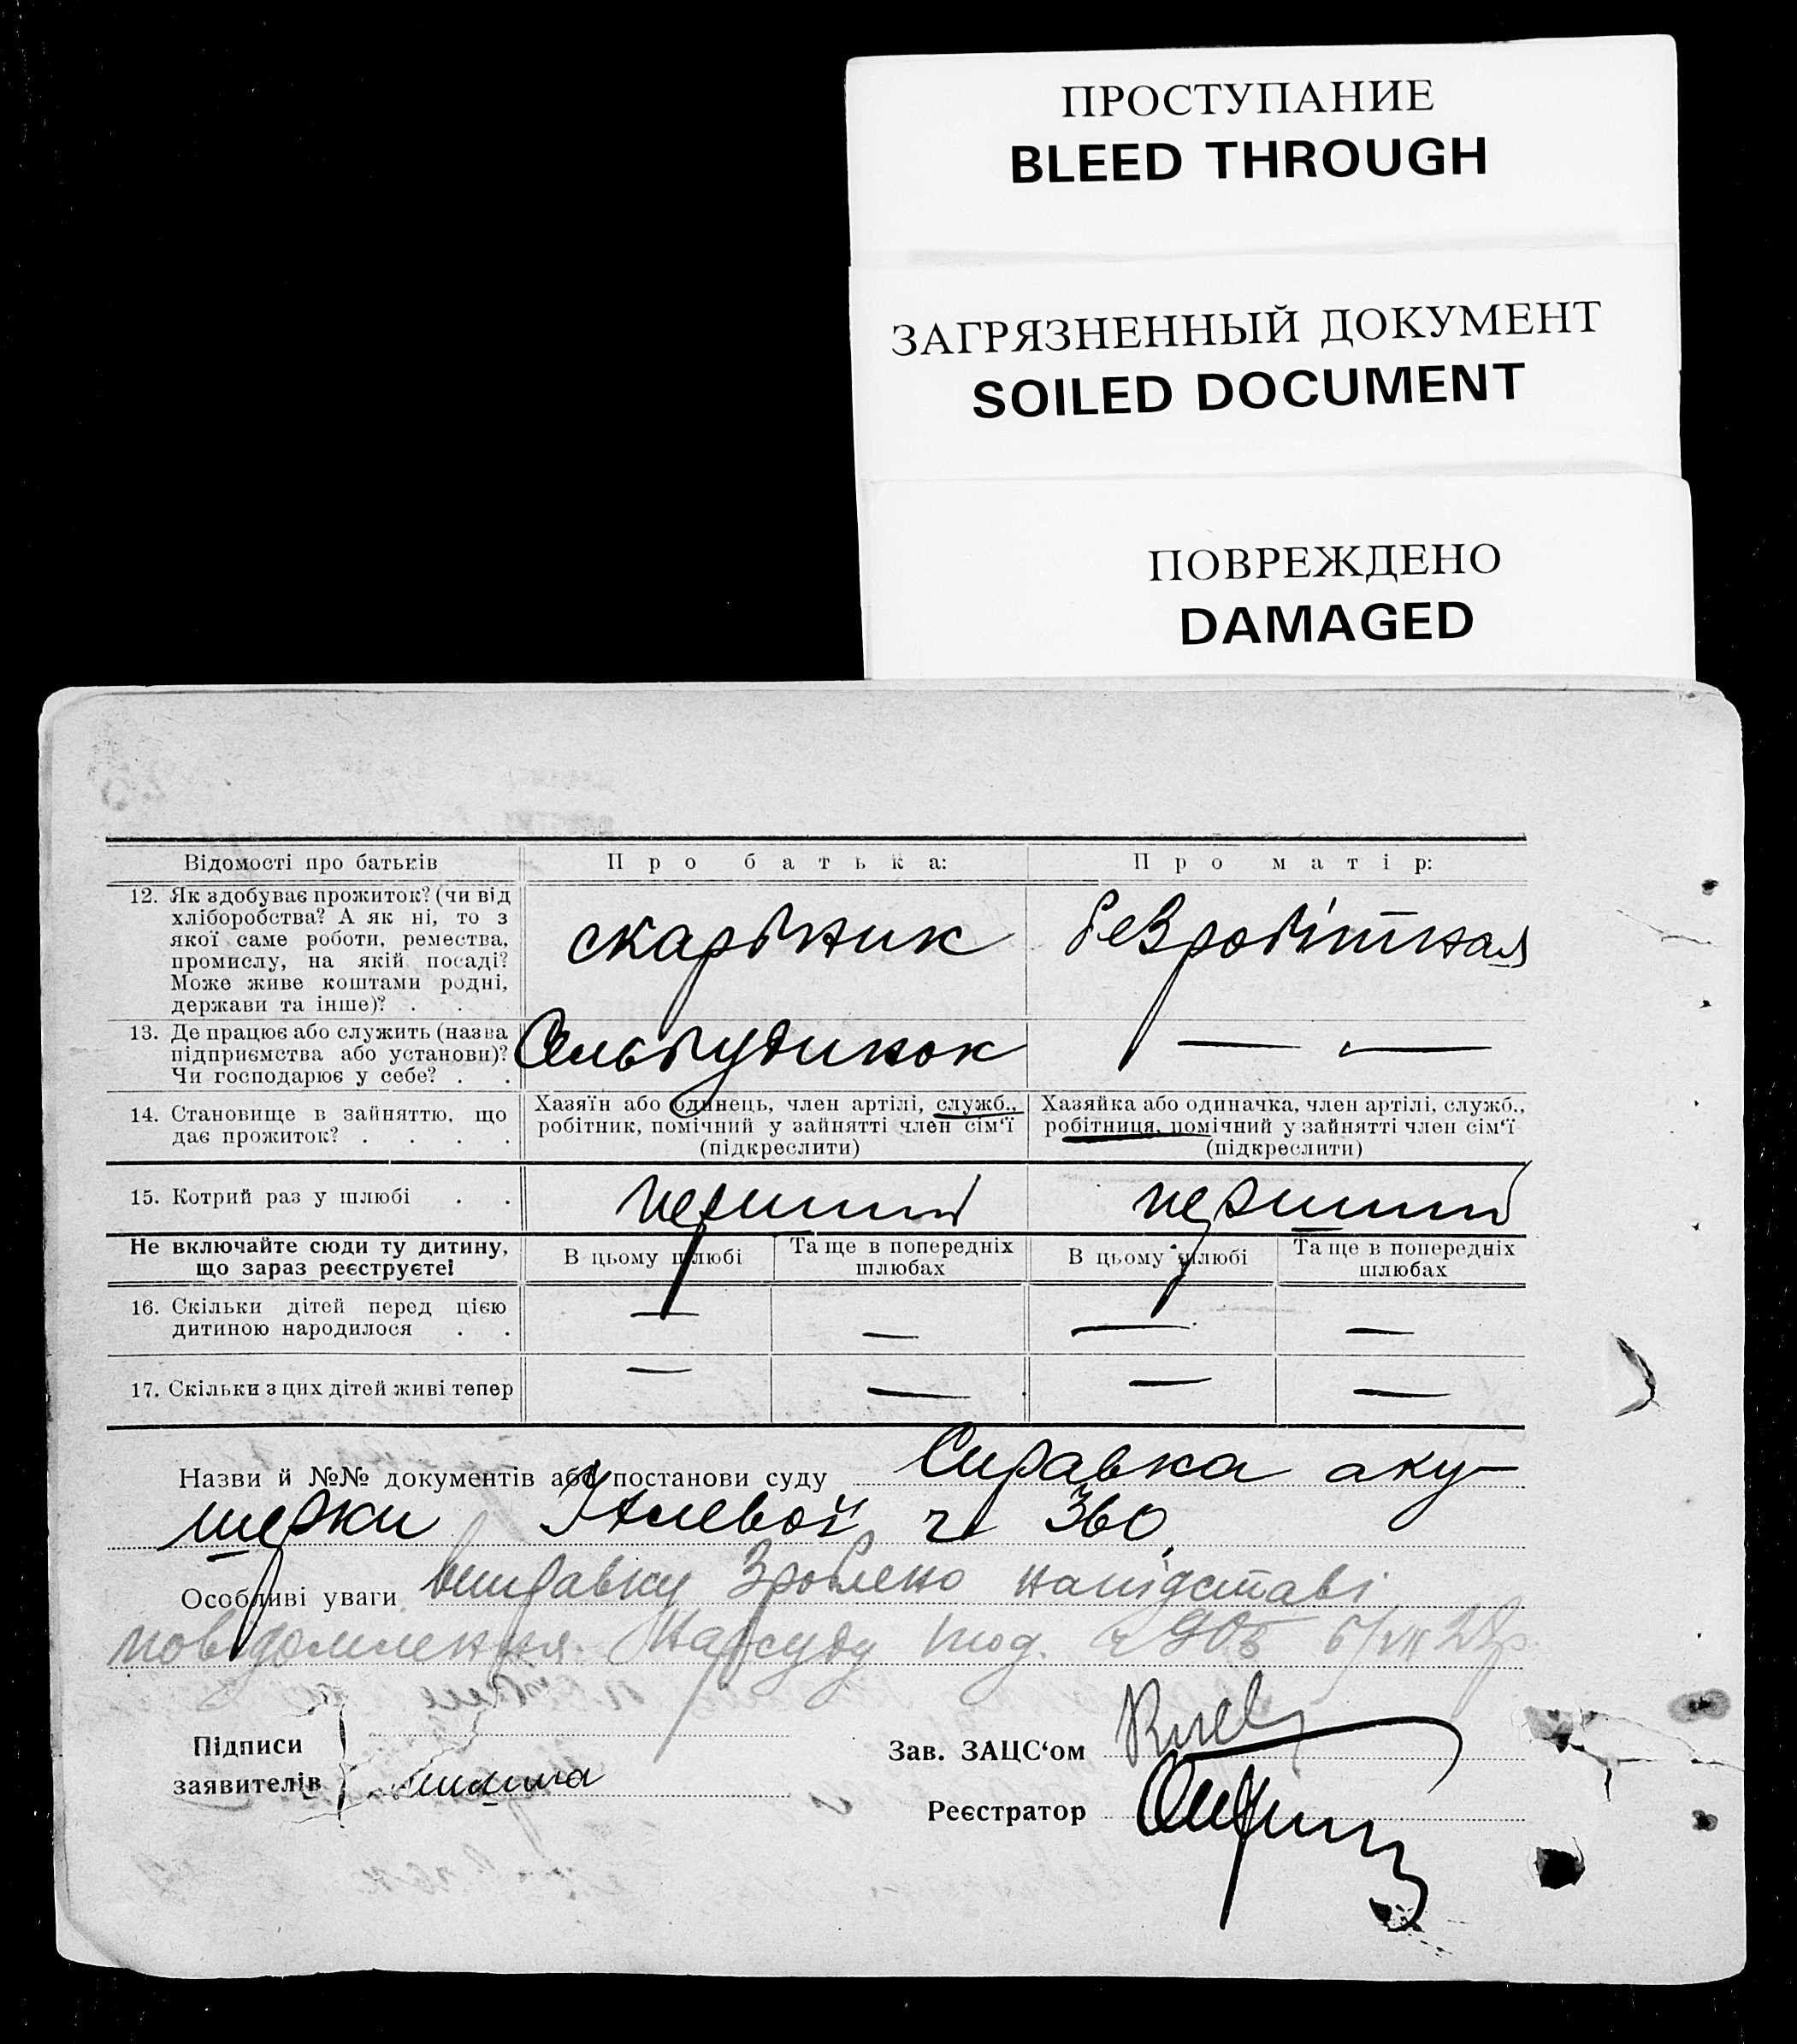 ПРОСТУПАНИЕ
BLEED THROUGH
ЗАГРЯЗНЕННЫЙ ДОКУМЕНТ
SOILED DOCUMENT
ПОВРЕЖДЕНО
DAMAGED
Відомості про батьків
Про батька:
Про матір:
12. Як здобуває прожиток? (чи від
хліборобства? А як ні, то з
якої саме роботи, ремества,
промислу, на якій посаді?
Може живе коштами родні,
держави та інше)? .
скарбник
безробітная
13. Де працює або служить (назва
підприємства або установи)?
Чи господарює у себе? . .
Сельбудинок
— —
14. Становище в зайняттю, що
дає прожиток? . . . .
Хазяїн або одинець, член артілі, служб.,
робітник, помічний у зайнятті член сім'ї
(підкреслити)
Хазяйка або одиначка, член артілі, служб.,
робітниця, помічний у зайнятті член сім'ї
(підкреслити)
15. Котрий раз у шлюбі . .
перший
перший
Не включайте сюди ту дитину,
що зараз реєструєте!
В цьому шлюбі
Та ще в попередніх
шлюбах
В цьому шлюбі
Та ще в попередніх
шлюбах
16. Скільки дітей перед цією
дитиною народилося . .
— — — —
17. Скільки з цих дітей живі тепер
— — — —
Назви й №№ документів або постанови суду Справка аку-
шерки ч 360
Особливі уваги виправку зроблено на підставі
повідомлення Нарсуду
Підписи
заявителів
Зав. ЗАЦС'ом
Реєстратор